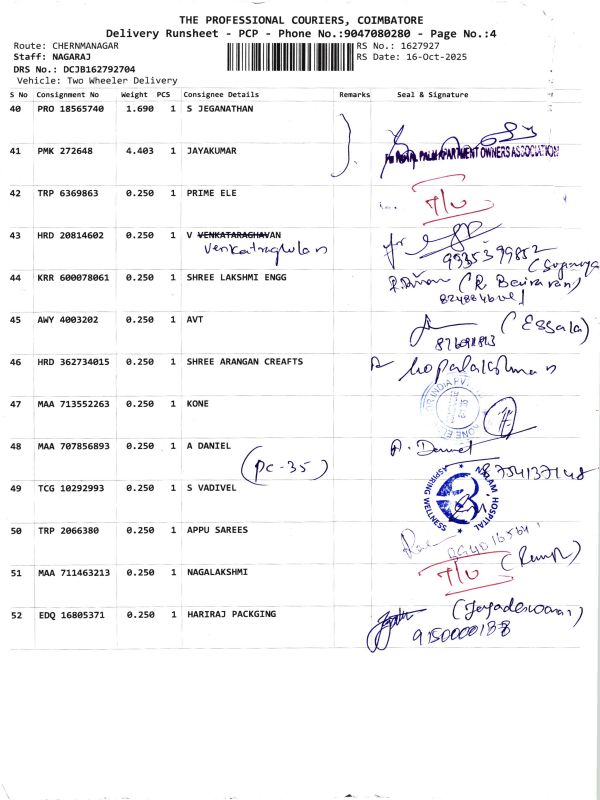 THE PROFESSIONAL COURIERS, COIMBATORE
Delivery Runsheet - PCP - Phone No.:9047080280 - Page No.:4
Route: CHERNMANAGAR
RS No.: 1627927
Staff: NAGARAJ
RS Date: 16-Oct-2025
DRS No.: DCJB162792704
Vehicle: Two Wheeler Delivery
S No Consignment No Weight PCS Consignee Details Remarks Seal & Signature
40 PRO 18565740 1.690 1 S JEGANATHAN
41 PMK 272648 4.403 1 JAYAKUMAR
PALM APARTMENT OWNERS ASSOCIATION
42 TRP 6369863 0.250 1 PRIME ELE
43 HRD 20814602 0.250 1 V VENKATARAGHAVAN
9935399852
44 KRR 600078061 0.250 1 SHREE LAKSHMI ENGG
45 AWY 4003202 0.250 1 AVT
(Essala)
46 HRD 362734015 0.250 1 SHREE ARANGAN CREAFTS
47 MAA 713552263 0.250 1 KONE
48 MAA 707856893 0.250 1 A DANIEL
(PC-35)
8754137148
49 TCG 10292993 0.250 1 S VADIVEL
ASPIRING WELLNESS
HOSPITAL
50 TRP 2066380 0.250 1 APPU SAREES
51 MAA 711463213 0.250 1 NAGALAKSHMI
52 EDQ 16805371 0.250 1 HARIRAJ PACKGING
9150000188